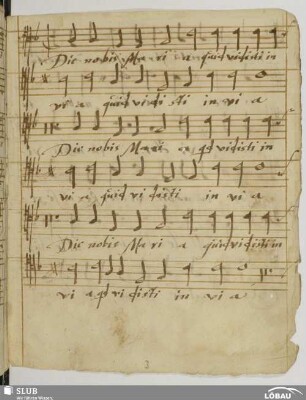 Dic nobis Ma ri a quid vidisti in
vi a quid vi di sti in vi a
Dic nobis Mari a qd vidisti in
vi a quid vi disti in vi a
Dic nobis Ma ri a quid vidisti in
vi a qd vi disti in vi a
3
SLUB
Wir führen Wissen.
LÖBAU